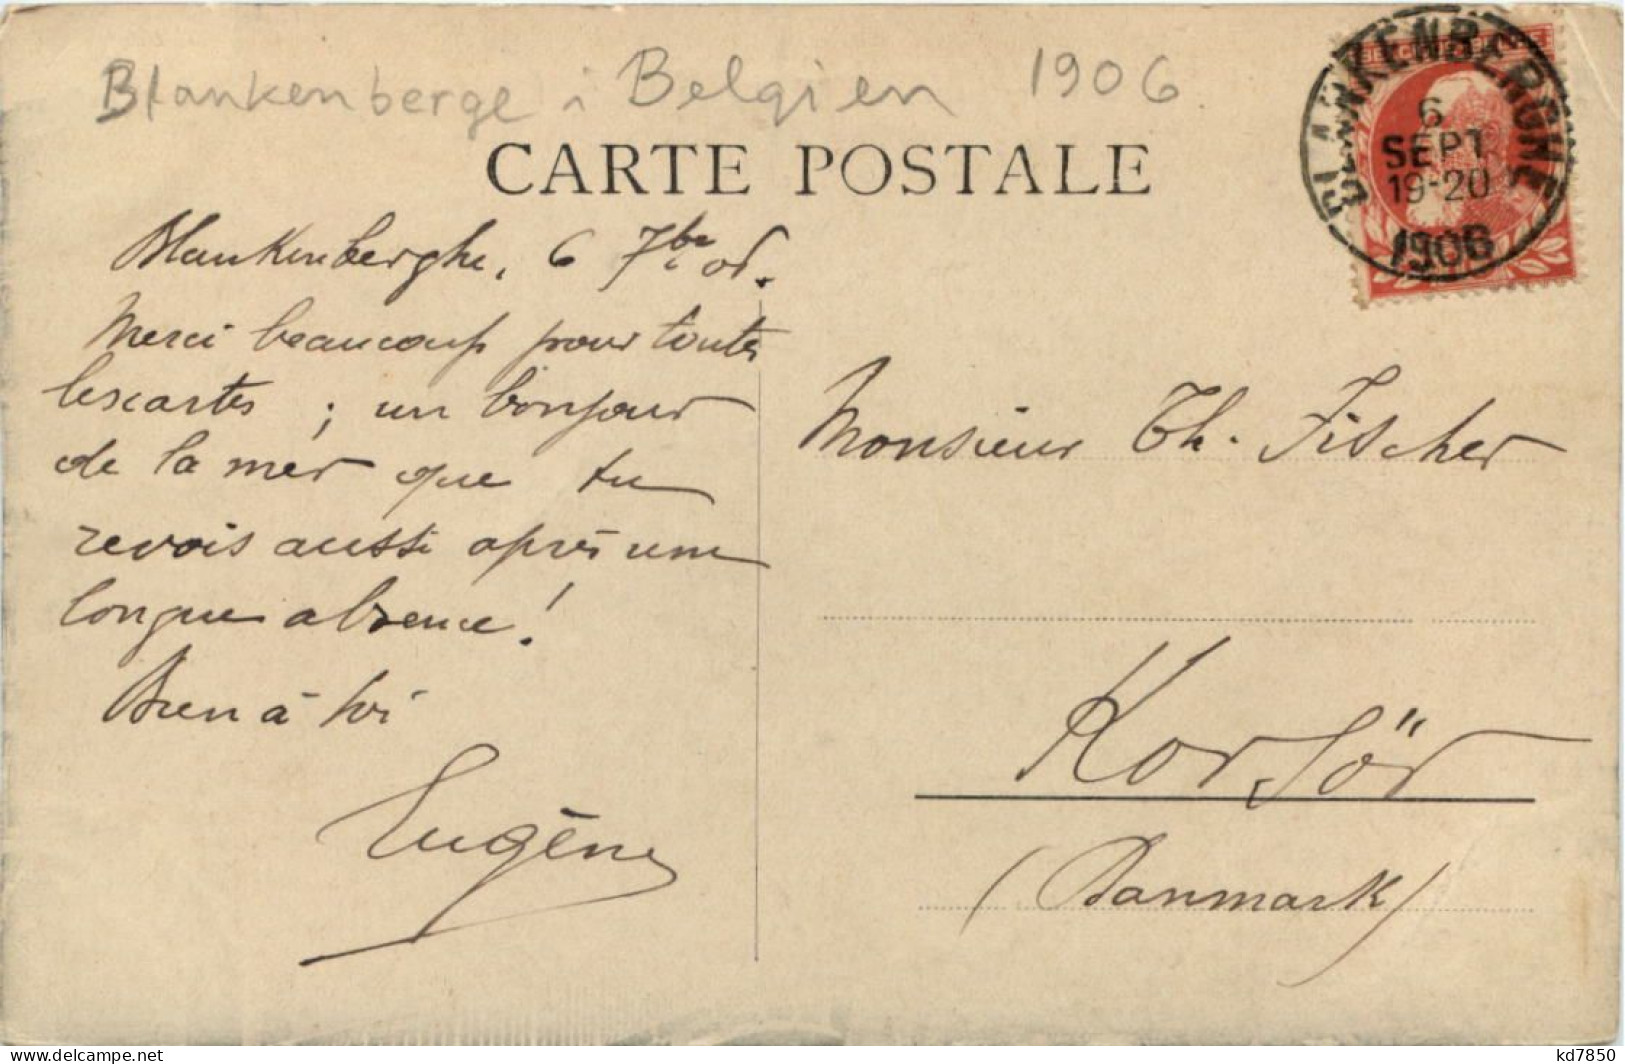 Blankenberge i Belgien 1906
CARTE POSTALE
BLANKENBERGHE
6
SEPT
19-20
1906
Blankenberghe, 6 7bre 06.
Merci beaucoup pour toutes
les cartes ; un bonjour
de la mer que tu
revois aussi après une
longue absence !
Bien à toi
Eugène
Monsieur Th. Fischer
Korsör
(Danmark)
kd7850